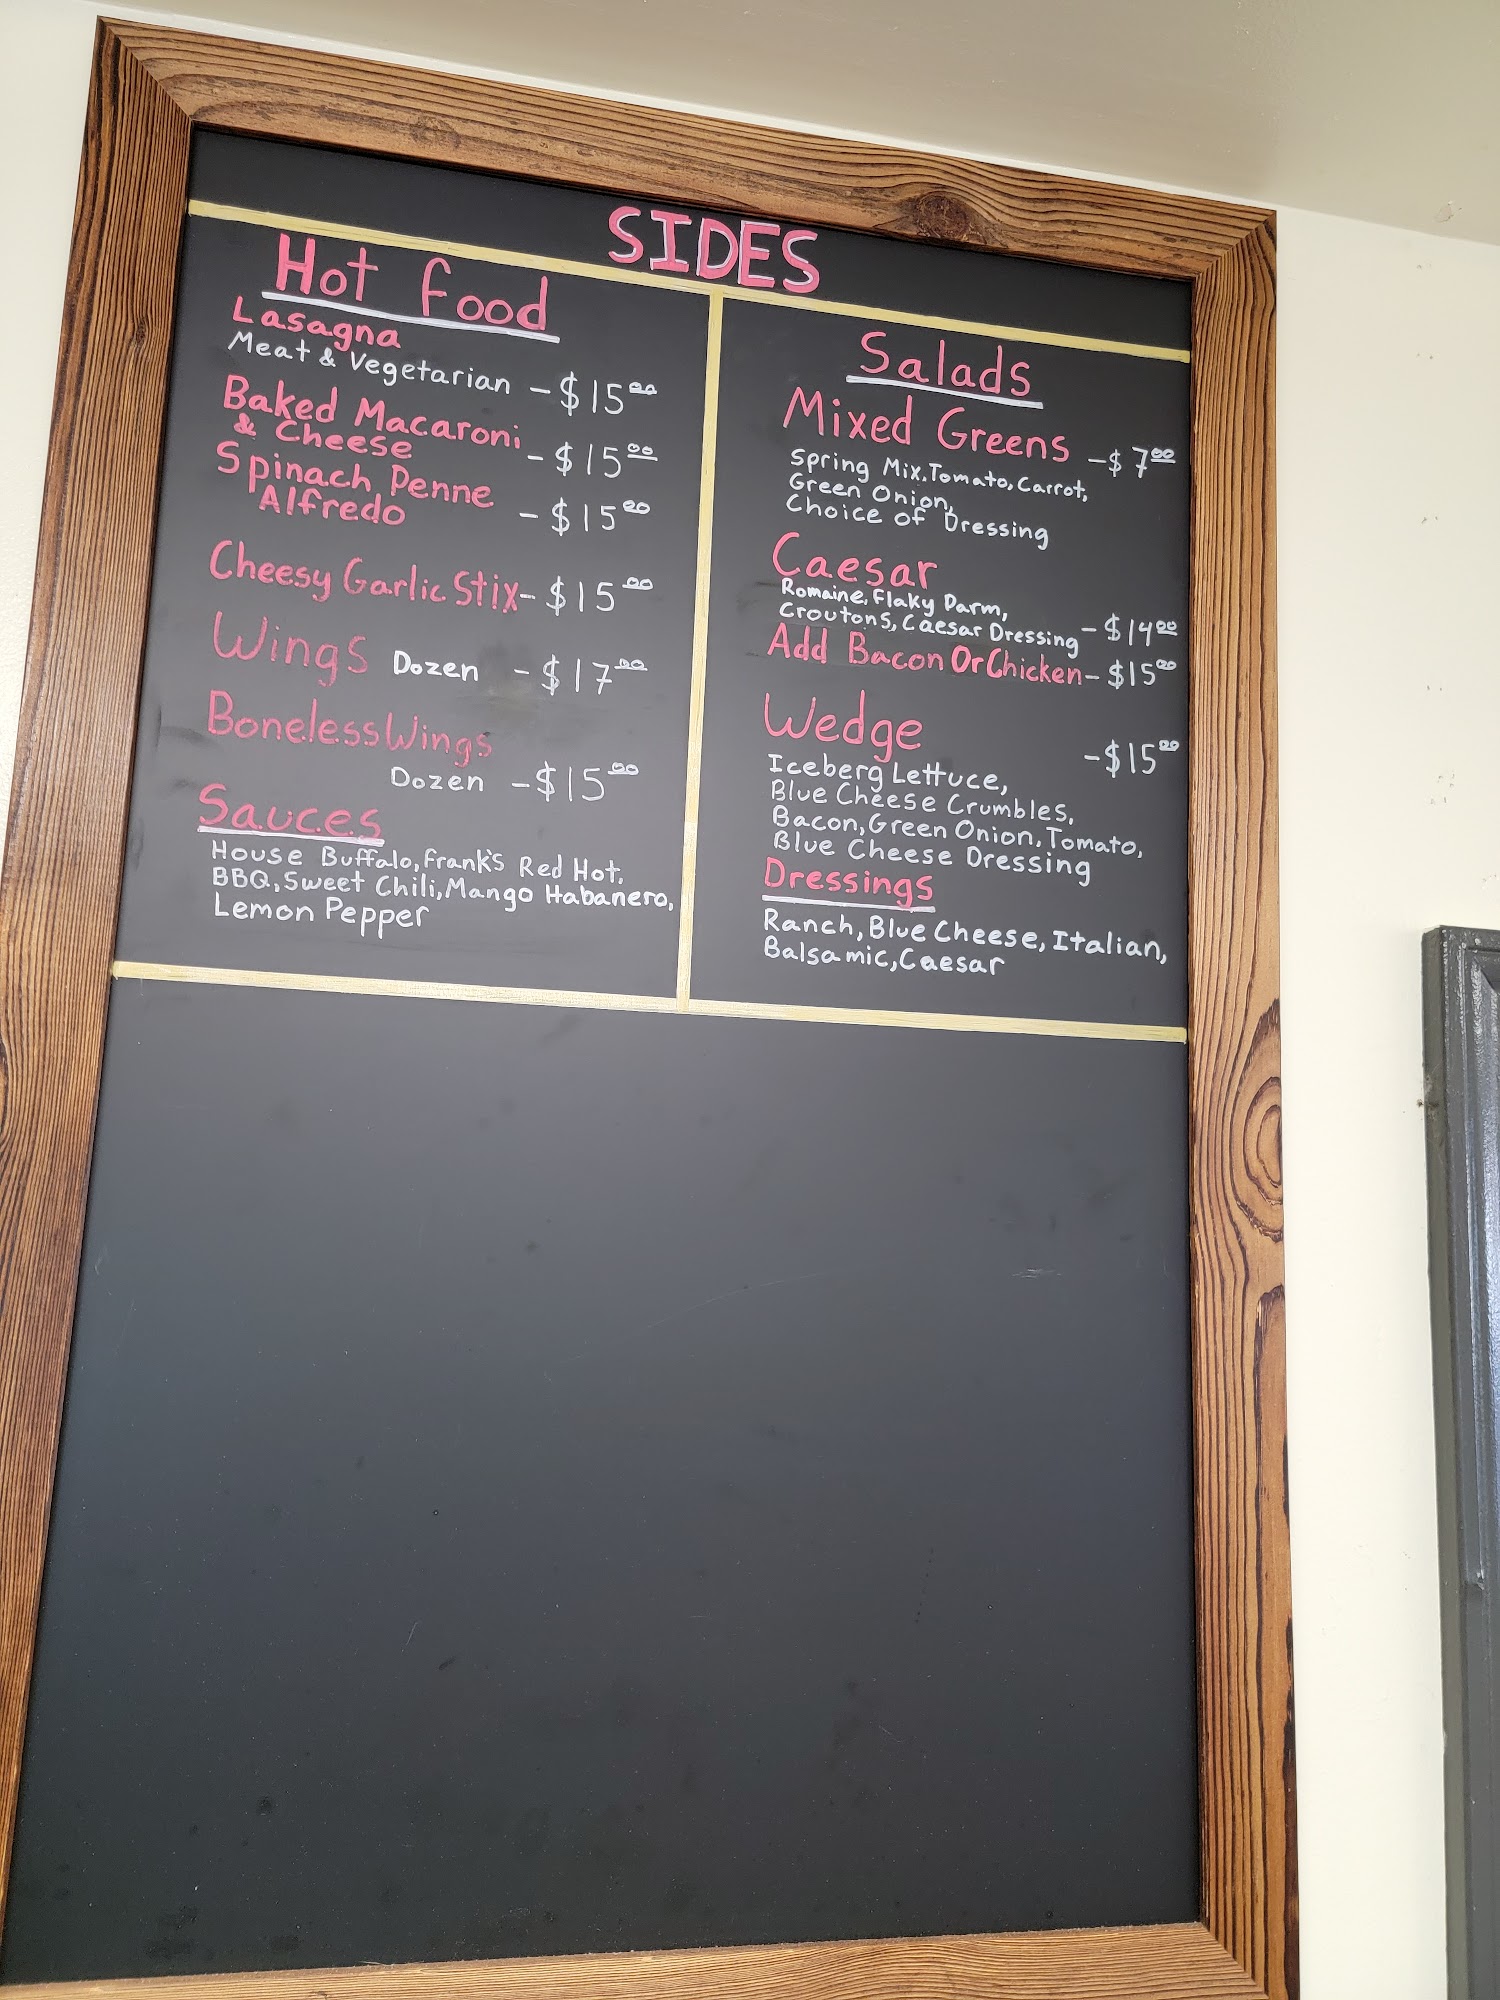 SIDES
Hot Food
Lasagna
Meat & Vegetarian - $15.00
Baked Macaroni
& Cheese - $15.00
Spinach Penne
Alfredo - $15.00
Cheesy Garlic Stix - $15.00
Wings Dozen - $17.00
Boneless Wings
Dozen - $15.00
Sauces
House Buffalo, Frank's Red Hot,
BBQ, Sweet Chili, Mango Habanero,
Lemon Pepper
Salads
Mixed Greens - $7.00
Spring Mix, Tomato, Carrot,
Green Onion,
Choice of Dressing
Caesar
Romaine, Flaky Parm,
Croutons, Caesar Dressing - $14.00
Add Bacon Or Chicken - $15.00
Wedge - $15.00
Iceberg Lettuce,
Blue Cheese Crumbles,
Bacon, Green Onion, Tomato,
Blue Cheese Dressing
Dressings
Ranch, Blue Cheese, Italian,
Balsamic, Caesar